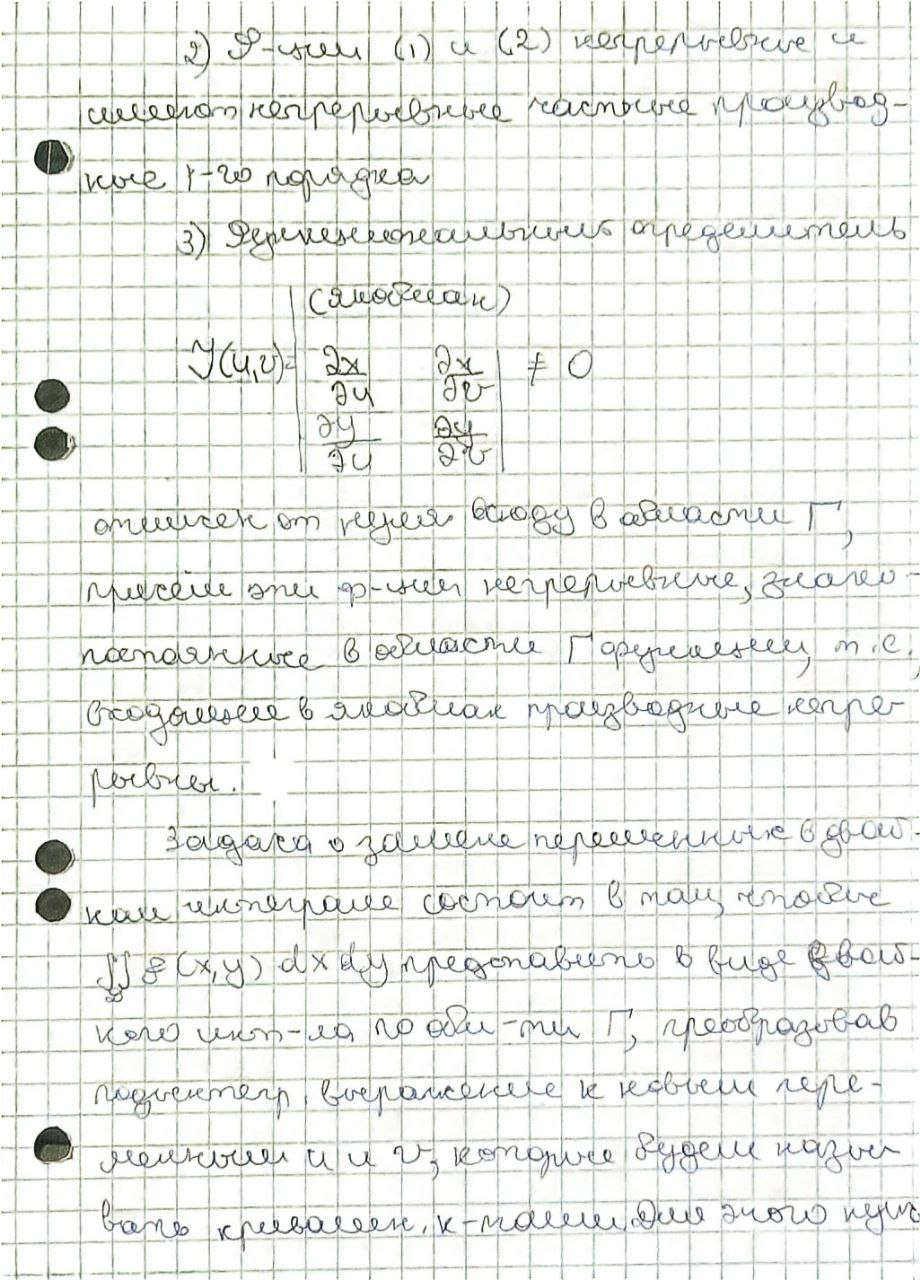 2) Ф-ции (1) и (2) непрерывные и
имеют непрерывные частные производ-
ные 1-го порядка
3) Функциональный определитель
(якобиан)
J(u,v)= | ∂x/∂u ∂x/∂v | ≠ 0
| ∂y/∂u ∂y/∂v |
отличен от нуля всюду в области Г,
причём эти ф-ции непрерывные, знако-
постоянные в области Г функции, т.е.
входящие в якобиан производные непре-
рывны.
Задача о замене переменных в двой-
ном интеграле состоит в том, чтобы
∬ f(x,y) dxdy представить в виде двой-
ного инт-ла по обл-ти Г, преобразовав
подынтегр. выражение к новым пере-
менным u и v, которые будем назы
вать криволин. к-тами. Для этого нуж